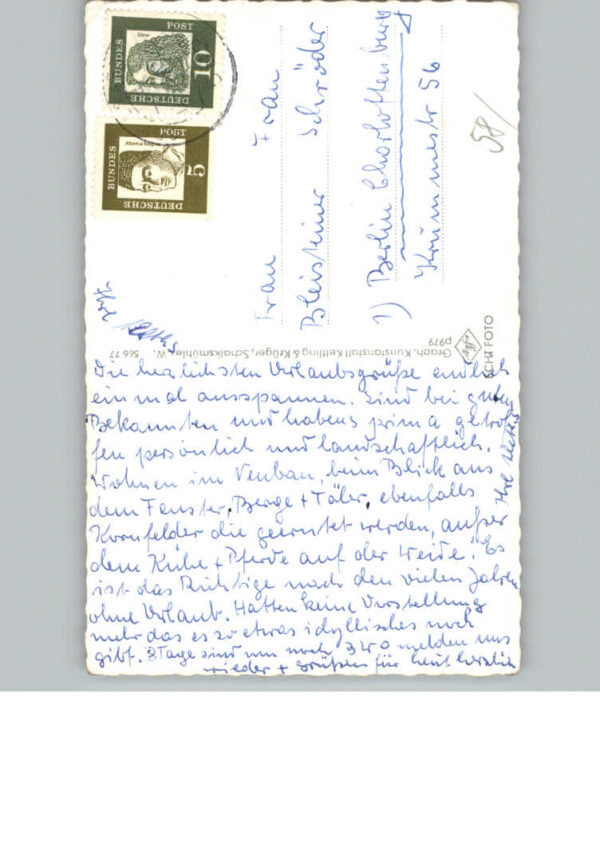 Die herzlichsten Urlaubsgrüße endlich
einmal ausspannen. Sind bei guten
Bekannten und habens prima getrof
fen persönlich und landschaftlich.
Wohnen im Neubau, beim Blick aus
dem Fenster, Berge + Täler, ebenfalls
Kornfelder die geerntet werden, außer
dem Kühe + Pferde auf der Weide. Es
ist das Richtige nach den vielen Jahren
ohne Urlaub. Hatten keine Vorstellung
mehr das es so etwas idyllisches noch
gibt. 3 Tage sind nun noch, melden uns
wieder + grüßen für heut herzlich
Ihre
Frau Frau
Bleisteiner Schröder
1) Berlin Charlottenburg
Krummestr 56
58/
DEUTSCHE
BUNDES
POST
10
DEUTSCHE
BUNDES
POST
5
Graph. Kunstanstalt Kettling & Krüger, Schalksmühle, W.
p979
ECHT FOTO